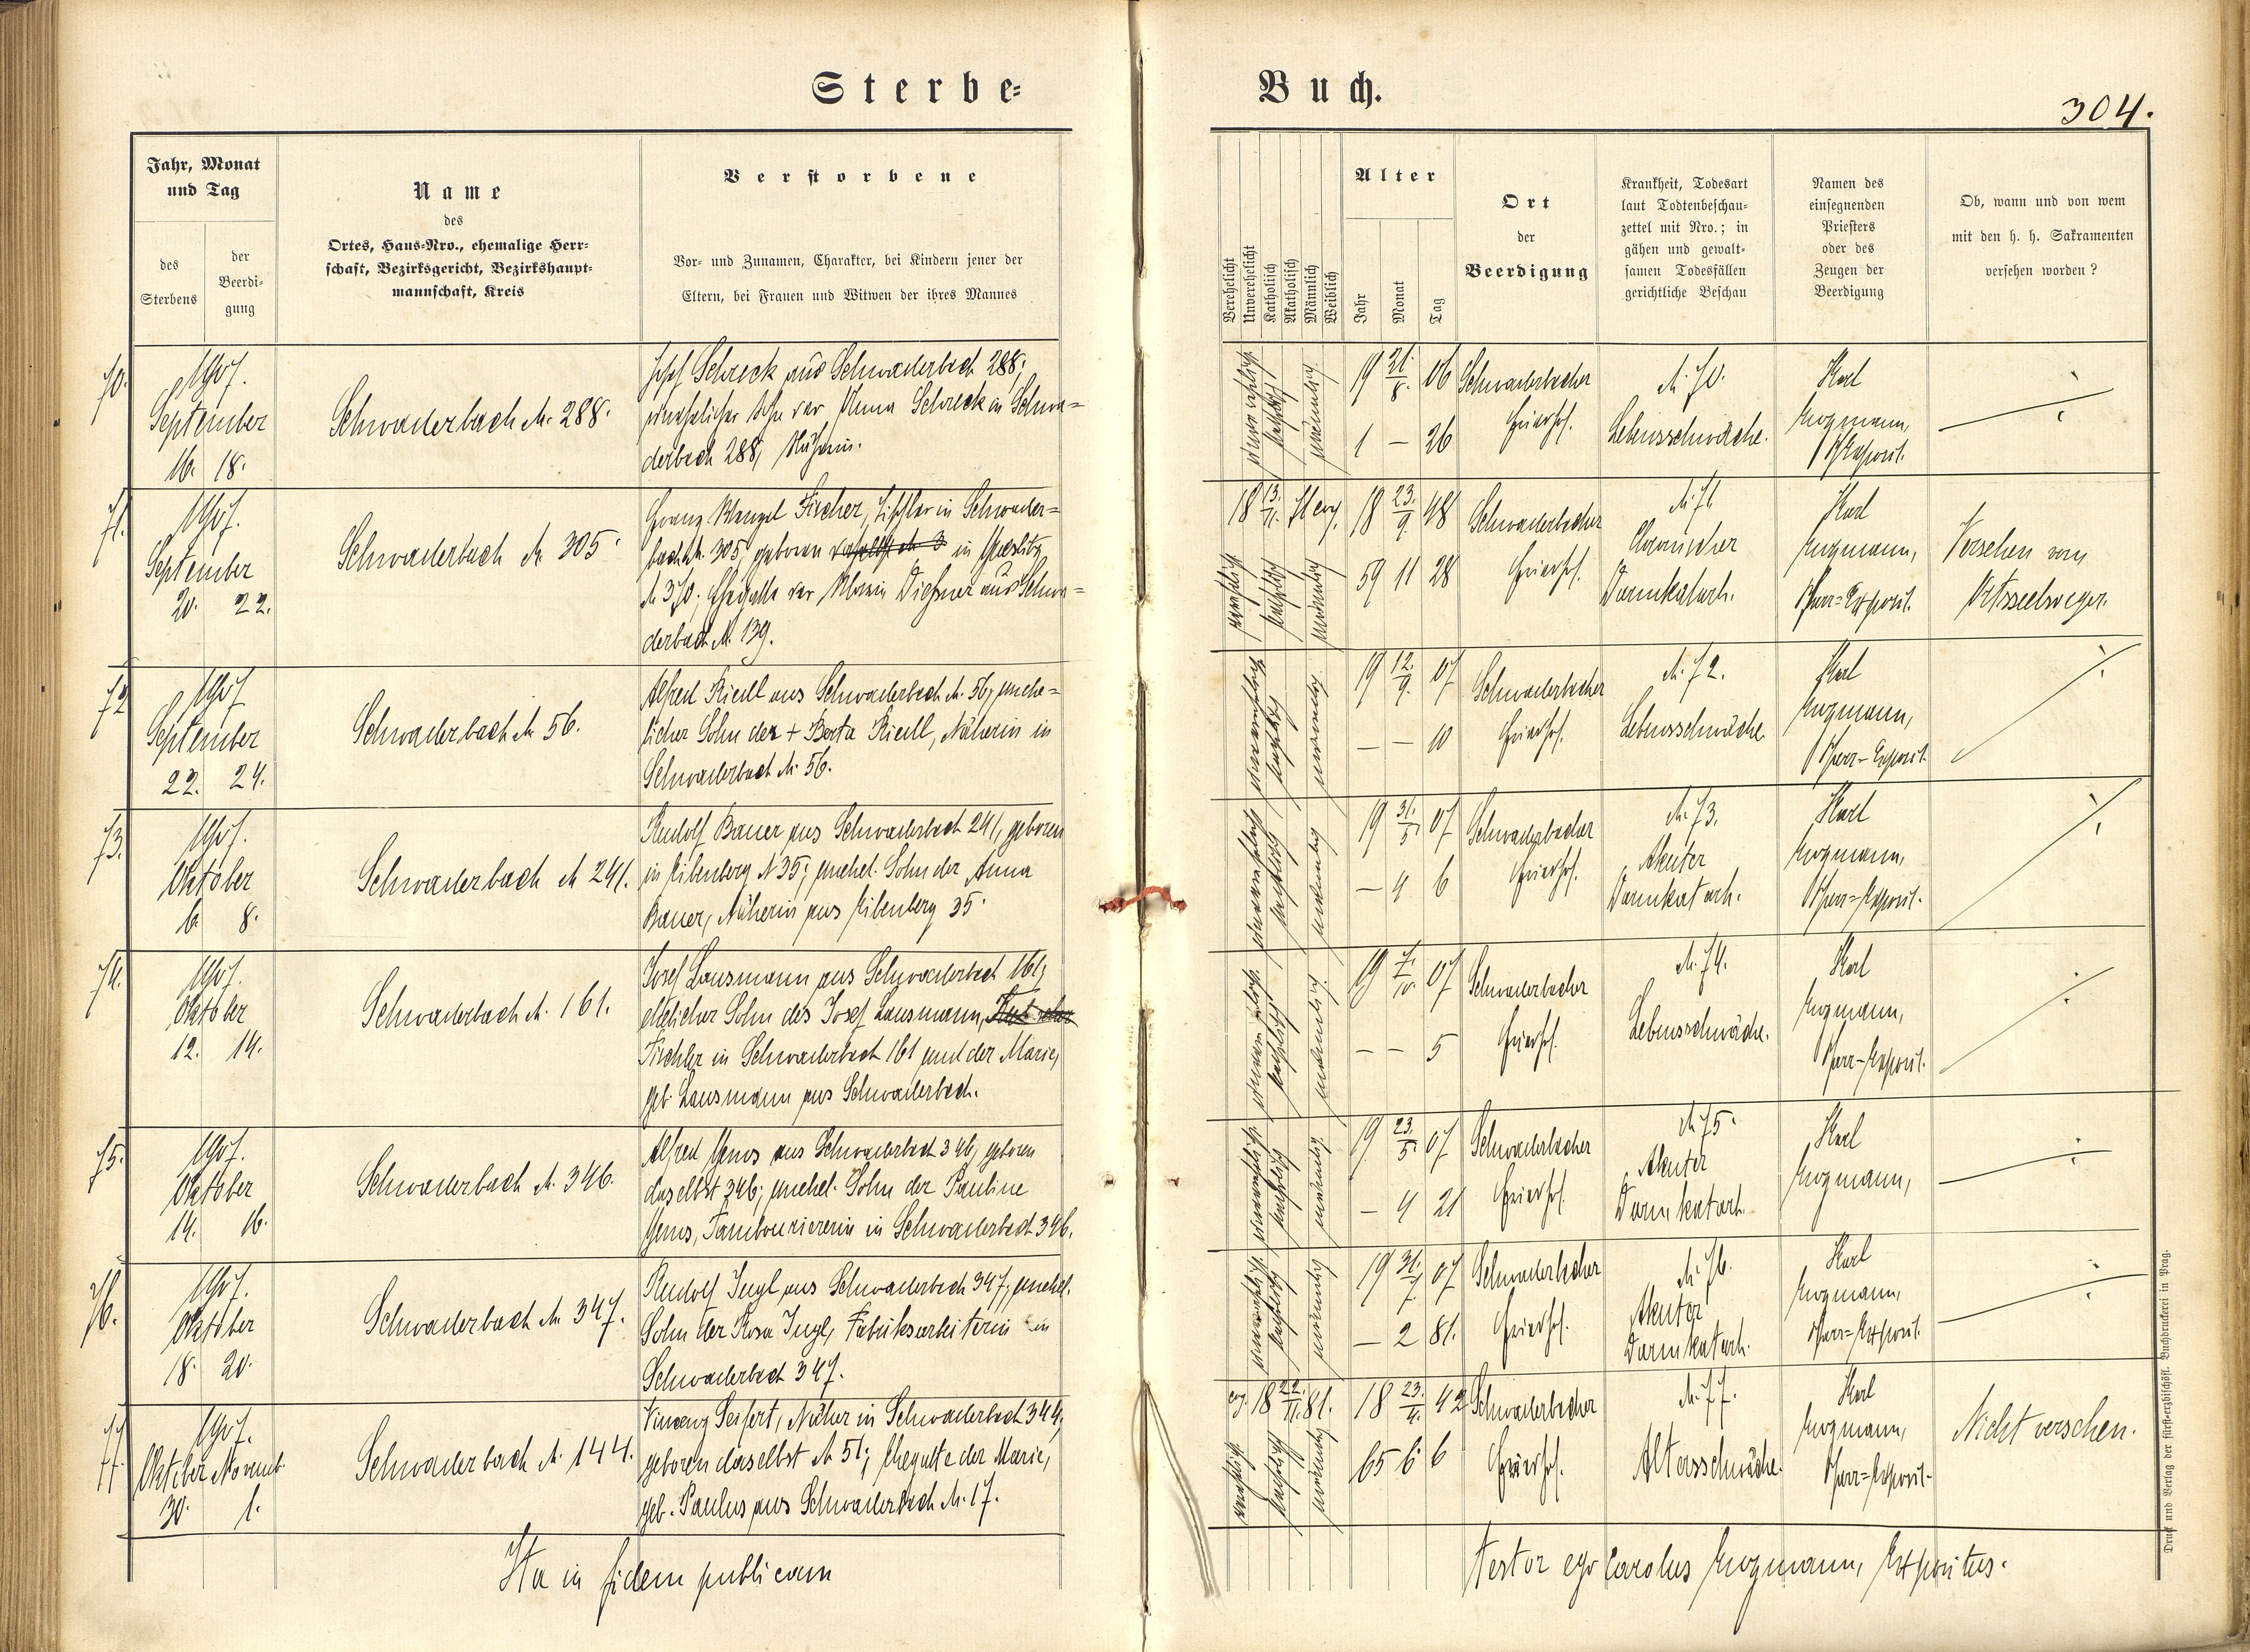 Sterbe=
Buch.
304.
Jahr, Monat
und Tag
des
Sterbens
der
Beerdi-
gung
Name
des
Ortes, Haus-Nro., ehemalige Herr-
schaft, Bezirksgericht, Bezirkshaupt-
mannschaft, Kreis
Verstorbene
Vor- und Zunamen, Charakter, bei Kindern jener der
Eltern, bei Frauen und Witwen der ihres Mannes
Verehelicht
Unverehelicht
Katholisch
Akatholisch
Männlich
Weiblich
Alter
Jahr
Monat
Tag
Ort
der
Beerdigung
Krankheit, Todesart
laut Todtenbeschau-
zettel mit Nro.; in
gähen und gewalt-
samen Todesfällen
gerichtliche Beschau
Namen des
einsegnenden
Priesters
oder des
Zeugen der
Beerdigung
Ob, wann und von wem
mit den h. h. Sakramenten
versehen worden?
70.
1907.
September
16. 18.
Schwaderbach N. 288.
Josef Schreck aus Schwaderbach 288;
unehelicher Sohn der Anna Schreck in Schwa=
derbach 288, Näherin.
19 21./8. 06
1 — 26
Schwaderbacher
Friedhof.
N. 70.
Lebensschwäche.
Karl
Krogmann,
71.
1907.
September
20. 22.
Schwaderbach N. 305.
Franz Wenzel Fischer, Tischler in Schwader=
bach N. 305, geboren in Graslitz
N 370; Ehegatte der Maria Dießner aus Schwa=
derbach N. 139.
18 23./9. 48
59 11 28
Schwaderbacher
Friedhof.
N. 71.
Chronischer
Darmkatarh.
Karl
Krogmann,
Pfarr=Exposit.
Versehen vom
Ortsseelsorger.
72
1907
September
22. 24.
Schwaderbach N. 56.
Alfred Riedl aus Schwaderbach N. 56, unehe=
licher Sohn der + Berta Riedl, Näherin in
Schwaderbach N. 56.
19 12./9. 07
— — 10
Schwaderbacher
Friedhof.
N. 72.
Lebensschwäche.
Karl
Krogmann,
Pfarr=Exposit.
73.
1907.
Oktober
6. 8.
Schwaderbach N 241.
Rudolf Bauer aus Schwaderbach 241, geboren
in Eibenberg N 35; unehel. Sohn der Anna
Bauer, Näherin aus Eibenberg 35.
19 31./5. 07
— 4 6
Schwaderbacher
Friedhof.
N. 73.
Akuter
Darmkatarh.
Karl
Krogmann,
Pfarr=Exposit.
74.
1907.
Oktober
12. 14.
Schwaderbach N. 161.
Josef Lausmann aus Schwaderbach 161;
ehelicher Sohn des Josef Lausmann,
Tischler in Schwaderbach 161 und der Marie,
geb. Lausmann aus Schwaderbach.
19 7./10. 07
— — 5
Schwaderbacher
Friedhof.
N. 74.
Lebensschwäche.
Karl
Krogmann,
Pfarr=Exposit.
75.
1907.
Oktober
14. 16.
Schwaderbach N. 346.
Alfred aus Schwaderbach 346, geboren
daselbst 346; unehel. Sohn der Pauline
Tambouriererin in Schwaderbach 346.
19 23./5. 07
— 4 21
Schwaderbacher
Friedhof.
N. 75.
Akuter
Darmkatarh.
Karl
Krogmann,
76.
1907.
Oktober
18. 20.
Schwaderbach N. 347.
Rudolf Ingl aus Schwaderbach 347, unehel.
Sohn der Rosa Ingl, Fabriksarbeiterin in
Schwaderbach 347.
19 31./7. 07
— 2 81.
Schwaderbacher
Friedhof.
N. 76.
Akuter
Darmkatarh.
Karl
Krogmann,
Pfarr=Exposit.
77.
1907.
Oktober Novemb.
30. 1.
Schwaderbach N. 144.
Vincenz Seifert, Näher in Schwaderbach 344,
geboren daselbst N 51; Ehegatte der Marie,
geb. Paulus aus Schwaderbach N. 17.
18 23./4. 42
65 6 6
Schwaderbacher
Friedhof.
N. 77.
Altersschwäche.
Karl
Krogmann,
Pfarr=Exposit.
Nicht versehen.
Ita in fidem publicam
testor ego Carolus Krogmann, Expositus.
Druck und Verlag der fürst-erzbischöfl. Buchdruckerei in Prag.